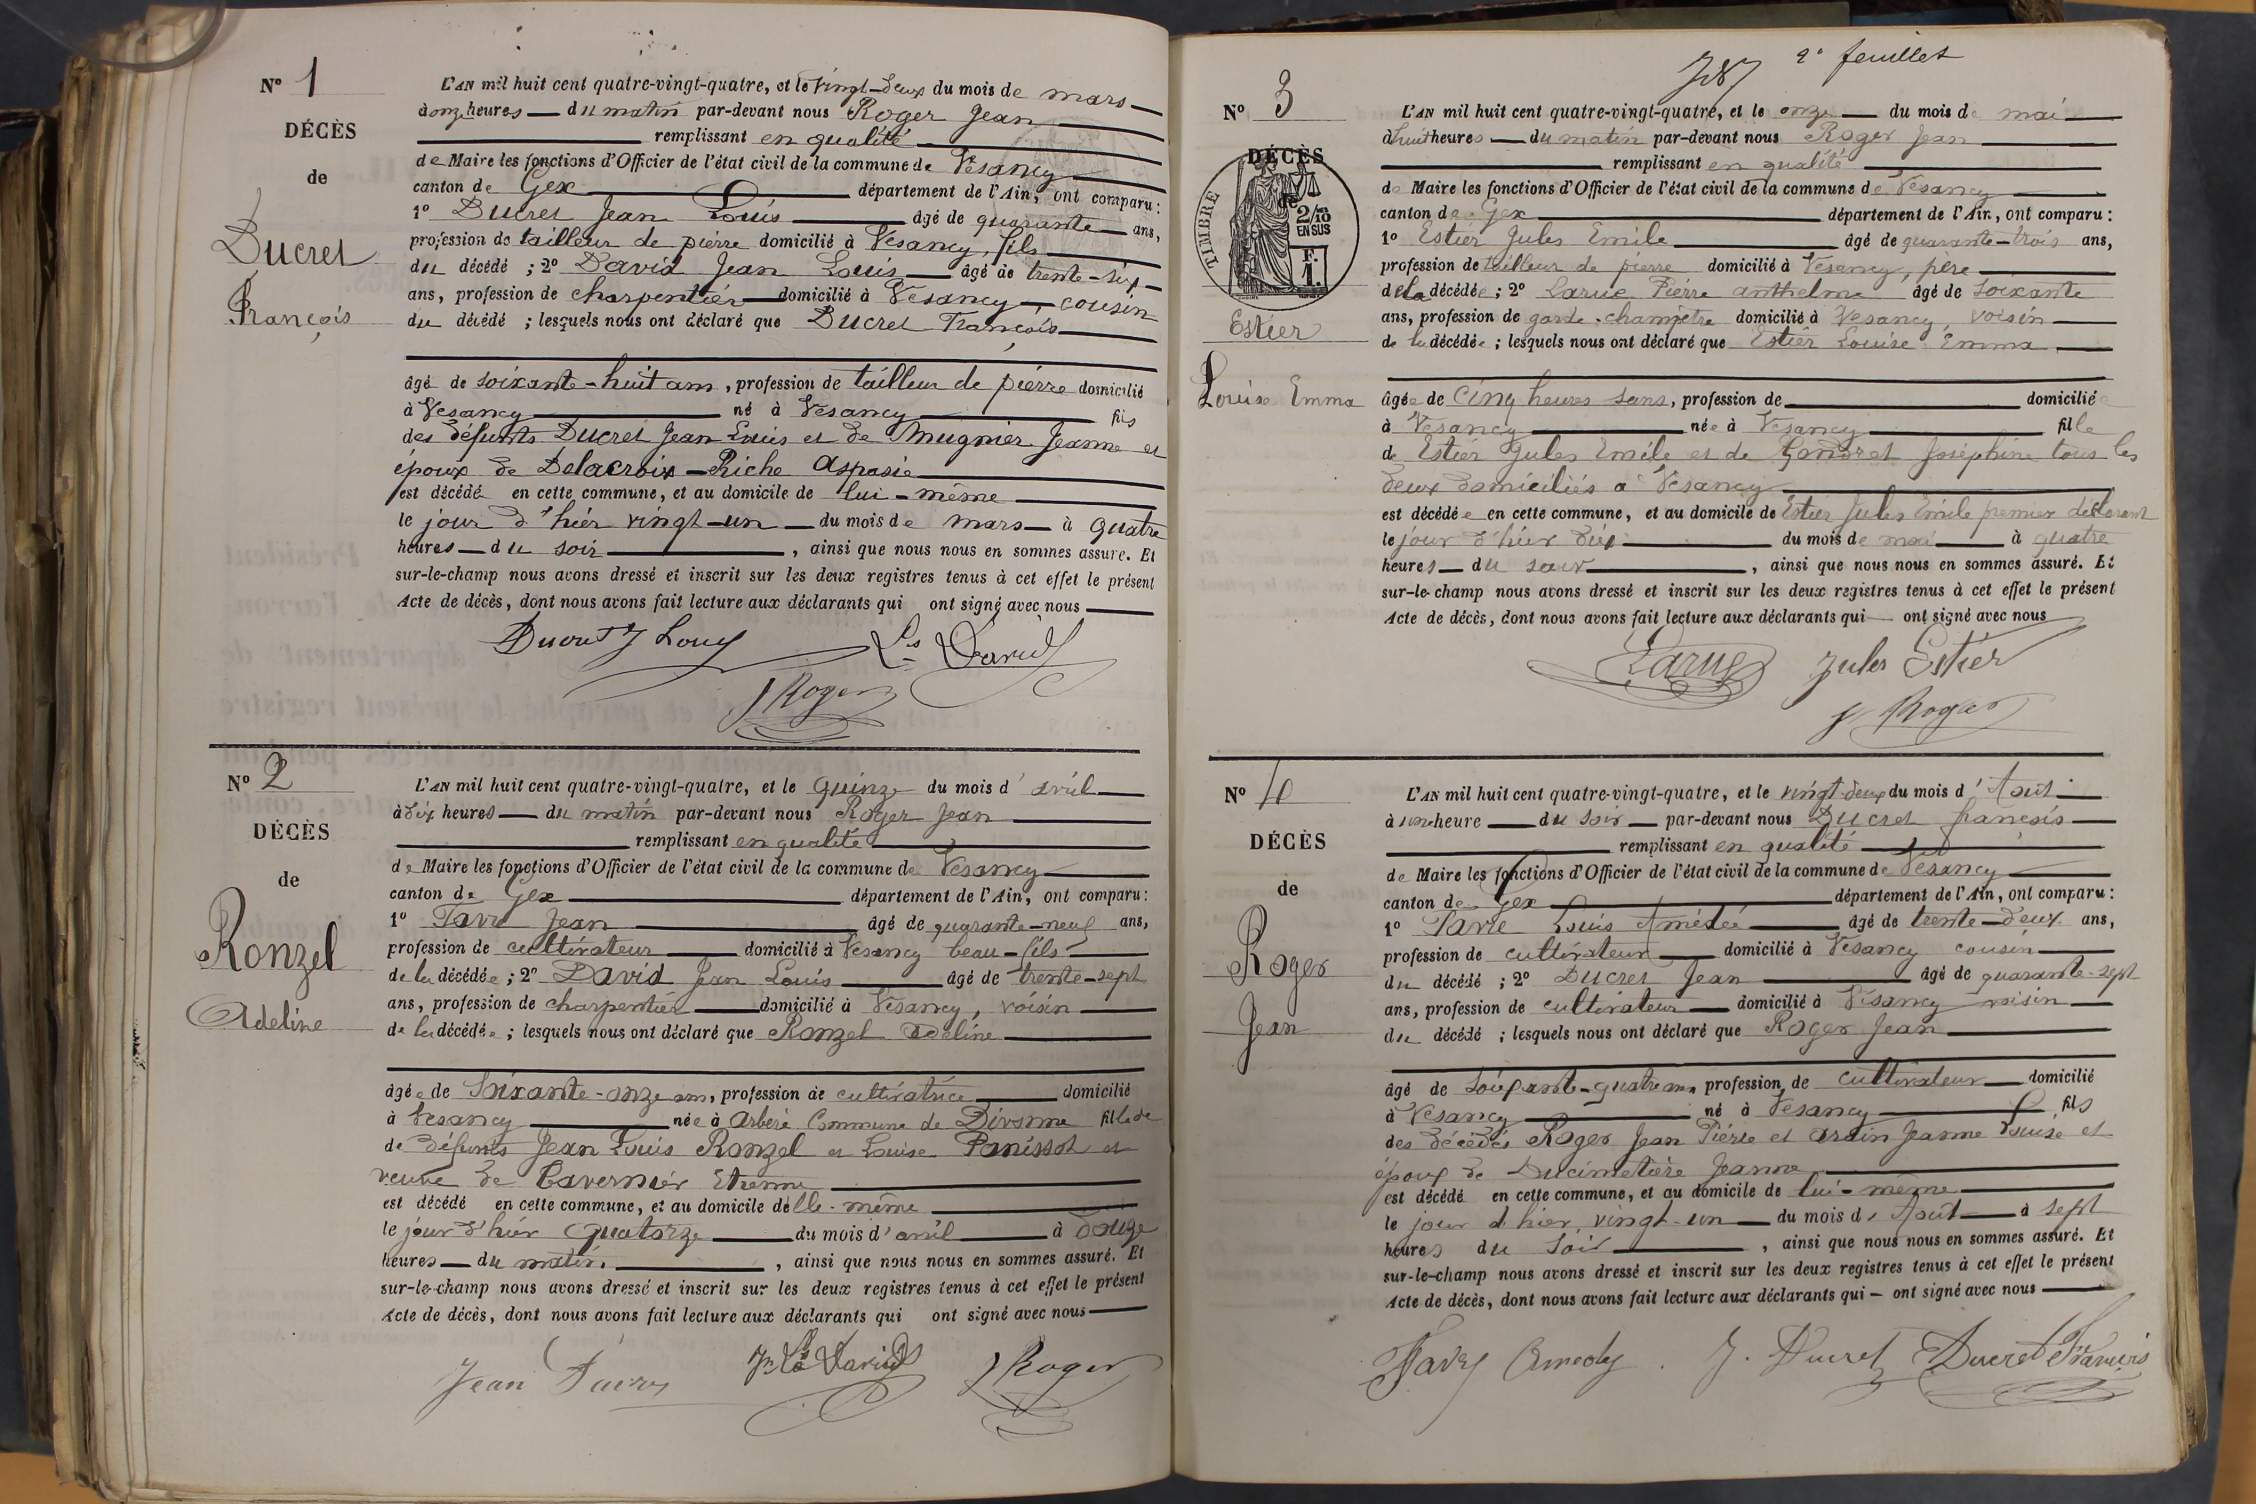 N° 1
DÉCÈS
de
Ducret
François
L'AN mil huit cent quatre-vingt-quatre, et le vingt-deux du mois de mars
à onze heures du matin par-devant nous Roger Jean
remplissant en qualité
de Maire les fonctions d'Officier de l'état civil de la commune de Vesancy
canton de Gex département de l'Ain, ont comparu :
1° Ducret Jean Louis âgé de quarante ans,
profession de tailleur de pierre domicilié à Vesancy, fils
du décédé ; 2° David Jean Louis âgé de trente-six
ans, profession de charpentier domicilié à Vesancy, cousin
du décédé ; lesquels nous ont déclaré que Ducret François
âgé de soixante-huit ans, profession de tailleur de pierre domicilié
à Vesancy né à Vesancy fils
des défunts Ducret Jean Louis et de Mugnier Jeanne et
époux de Delacroix-Riche Aspasie
est décédé en cette commune, et au domicile de lui-même
le jour d'hier vingt-un du mois de mars à quatre
heures du soir, ainsi que nous nous en sommes assuré. Et
sur-le-champ nous avons dressé et inscrit sur les deux registres tenus à cet effet le présent
Acte de décès, dont nous avons fait lecture aux déclarants qui ont signé avec nous
Ducret J Louis Ls David
J Roger
N° 2
DÉCÈS
de
Ronzel
Adeline
L'AN mil huit cent quatre-vingt-quatre, et le quinze du mois d'avril
à dix heures du matin par-devant nous Roger Jean
remplissant en qualité
de Maire les fonctions d'Officier de l'état civil de la commune de Vesancy
canton de Gex département de l'Ain, ont comparu :
1° Jean âgé de quarante-neuf ans,
profession de cultivateur domicilié à Vesancy beau-fils
de la décédée ; 2° David Jean Louis âgé de trente-sept
ans, profession de charpentier domicilié à Vesancy, voisin
de la décédée ; lesquels nous ont déclaré que Ronzel Adeline
âgée de soixante-onze ans, profession de cultivatrice domicilié
à Vesancy née à Arbère Commune de Divonne fille de
de défunts Jean Louis Ronzel et Louise Panissot et
veuve de Tavernier Etienne
est décédé en cette commune, et au domicile d'elle-même
le jour d'hier quatorze du mois d'avril à douze
heures du matin, ainsi que nous nous en sommes assuré. Et
sur-le-champ nous avons dressé et inscrit sur les deux registres tenus à cet effet le présent
Acte de décès, dont nous avons fait lecture aux déclarants qui ont signé avec nous
Jean Jn Ls David J Roger
787 2e feuillet
N° 3
DÉCÈS
de
TIMBRE
2/10 EN SUS
F.
1.
Estier
Louise Emma
L'AN mil huit cent quatre-vingt-quatre, et le onze du mois de mai
à huit heures du matin par-devant nous Roger Jean
remplissant en qualité
de Maire les fonctions d'Officier de l'état civil de la commune de Vesancy
canton de Gex département de l'Ain, ont comparu :
1° Estier Jules Emile âgé de quarante-trois ans,
profession de tailleur de pierre domicilié à Vesancy, père
de la décédée ; 2° Larue Pierre Anthelme âgé de soixante
ans, profession de garde-champêtre domicilié à Vesancy, voisin
de la décédée ; lesquels nous ont déclaré que Estier Louise Emma
âgée de cinq heures sans, profession de domiciliée
à Vesancy née à Vesancy fille
de Estier Jules Emile et de Joséphine tous les
deux domiciliés à Vesancy
est décédée en cette commune, et au domicile de Estier Jules Emile premier déclarant
le jour d'hier dix du mois de mai à quatre
heures du soir, ainsi que nous nous en sommes assuré. Et
sur-le-champ nous avons dressé et inscrit sur les deux registres tenus à cet effet le présent
Acte de décès, dont nous avons fait lecture aux déclarants qui ont signé avec nous
Larue Jules Estier
J Roger
N° 4
DÉCÈS
de
Roger
Jean
L'AN mil huit cent quatre-vingt-quatre, et le vingt-deux du mois d'Août
à une heure du soir par-devant nous Ducret françois
remplissant en qualité
de Maire les fonctions d'Officier de l'état civil de la commune de Vesancy
canton de Gex département de l'Ain, ont comparu :
1° Louis Amédée âgé de trente-deux ans,
profession de cultivateur domicilié à Vesancy cousin
du décédé ; 2° Ducret Jean âgé de quarante-sept
ans, profession de cultivateur domicilié à Vesancy voisin
du décédé ; lesquels nous ont déclaré que Roger Jean
âgé de soixante-quatre ans profession de cultivateur domicilié
à Vesancy né à Vesancy fils
des décédés Roger Jean Pierre et Jeanne Louise et
époux de Ducimetière Jeanne
est décédé en cette commune, et au domicile de lui-même
le jour d'hier, vingt-un du mois d'Août à sept
heures du soir, ainsi que nous nous en sommes assuré. Et
sur-le-champ nous avons dressé et inscrit sur les deux registres tenus à cet effet le présent
Acte de décès, dont nous avons fait lecture aux déclarants qui — ont signé avec nous
J. Ducret Ducret Francois